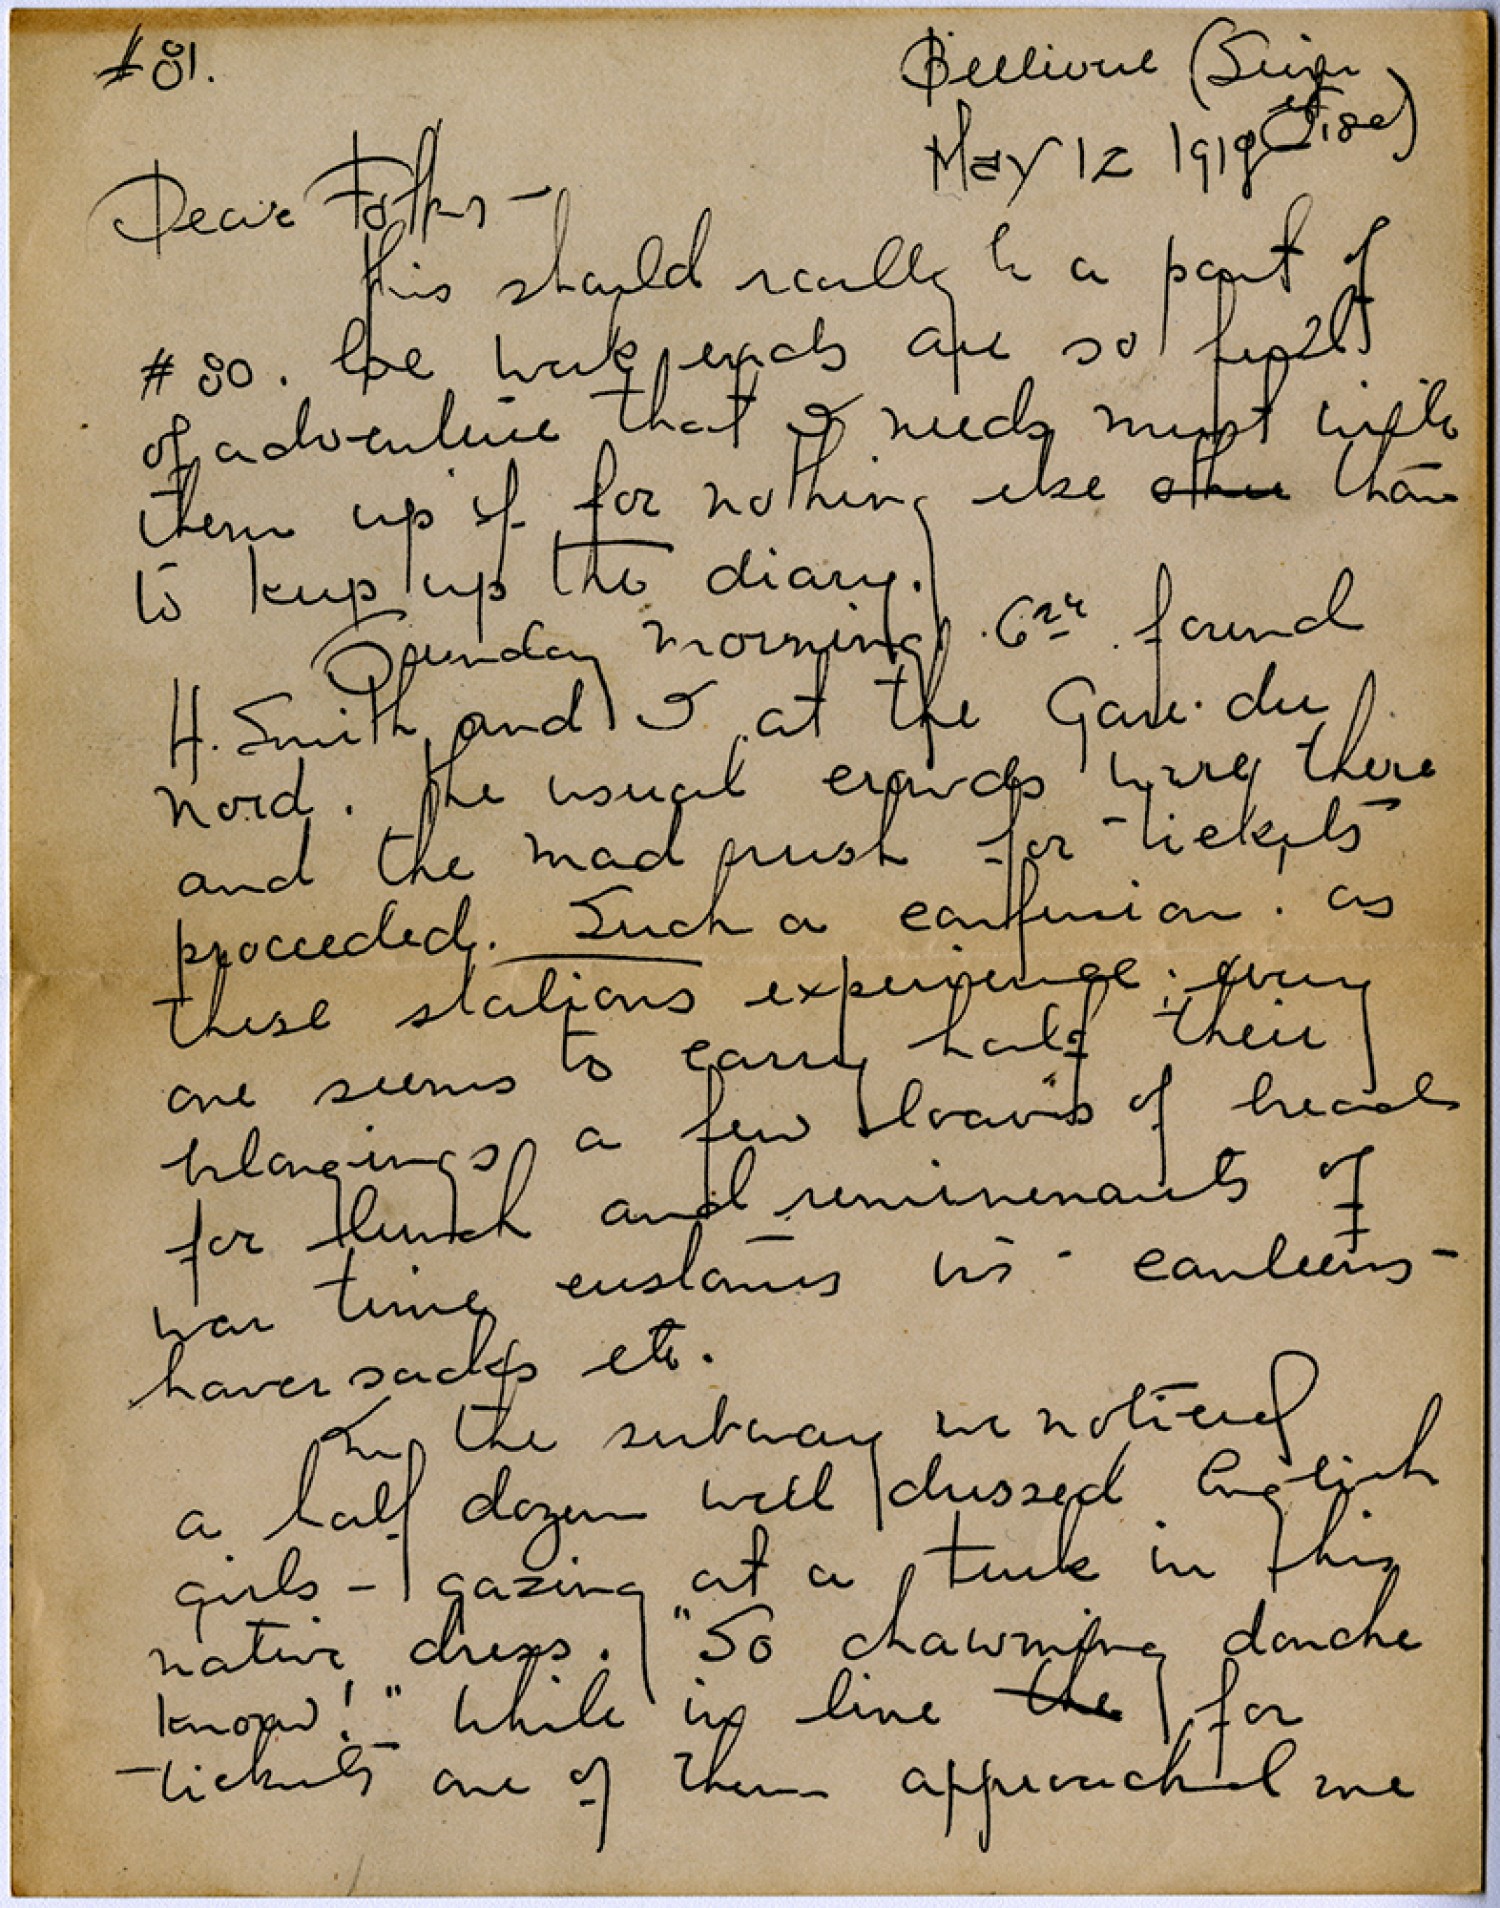 #81.
Bellevue (Seine
et Oise)
May 12 1919
Dear Folks -
This should really be a part of
#80. The week ends are so full
of adventure that I needs must write
them up if for nothing else other than
to keep up the diary.
Sunday morning found
H. Smith and I at the Gare du
Nord. The usual crowds were there
and the mad rush for tickets
proceeded. Such a confusion. as
these stations experience. every
one seems to carry half their
belongings a few loaves of bread
for lunch and reminenants of
war time customs viz - canteens -
haversacks etc.
In the subway we noticed
a half dozen well dressed English
girls - gazing at a Turk in his
native dress. "So chawming donche
know!" While in line the for
tickets one of them approached me